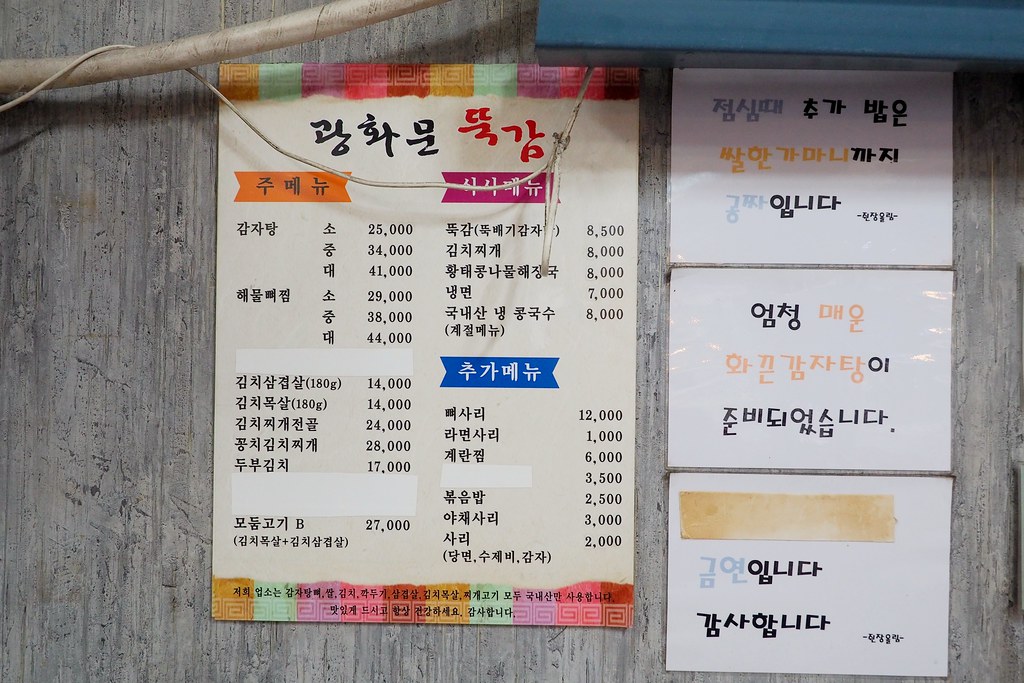 광화문 뚝감
주메뉴
감자탕 소 25,000
중 34,000
대 41,000
해물뼈찜 소 29,000
중 38,000
대 44,000
김치삼겹살(180g) 14,000
김치목살(180g) 14,000
김치찌개전골 24,000
꽁치김치찌개 28,000
두부김치 17,000
모둠고기 B 27,000
(김치목살+김치삼겹살)
식사메뉴
뚝감(뚝배기감자탕) 8,500
김치찌개 8,000
황태콩나물해장국 8,000
냉면 7,000
국내산 냉 콩국수 8,000
(계절메뉴)
추가메뉴
뼈사리 12,000
라면사리 1,000
계란찜 6,000
3,500
볶음밥 2,500
야채사리 3,000
사리 2,000
(당면,수제비,감자)
저희 업소는 감자탕뼈,쌀,김치,깍두기,삼겹살,김치목살,찌개고기 모두 국내산만 사용합니다.
맛있게 드시고 항상 건강하세요. 감사합니다.
점심때 추가 밥은
쌀한가마니까지
공짜입니다
-쥔장올림-
엄청 매운
화끈감자탕이
준비되었습니다.
금연입니다
감사합니다
-쥔장올림-